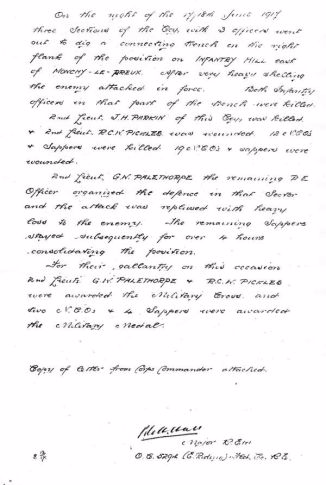 On the night of the 17/18th June 1917
three Sections of the Coy, with 3 officers went
out to dig a connecting trench on the right
flank of the position on INFANTRY HILL east
of MONCHY-LE-PREUX. After very heavy shelling
the enemy attacked in force. Both Infantry
officers in that part of the trench were killed.
2nd Lieut. J.H. PARKIN of this Coy, was killed
& 2nd Lieut. R.C.K. PICKLES was wounded. 12 N.C.Os
& Sappers were killed 19 N.C.Os & sappers were
wounded.
2nd Lieut. G.N. PALETHORPE the remaining R.E
Officer organized the defence in that Sector
and the attack was repulsed with heavy
loss to the enemy. The remaining Sappers
stayed subsequently for over 4 hours
consolidating the position.
For their gallantry on this occasion
2nd Lieuts G.N. PALETHORPE & R.C.K. PICKLES
were awarded the Military Cross. and
two N.C.Os & 4 Sappers were awarded
the Military Medal.
Copy of letter from Corps Commander attached.
Major R.E.
O.C. Coy. R.E.